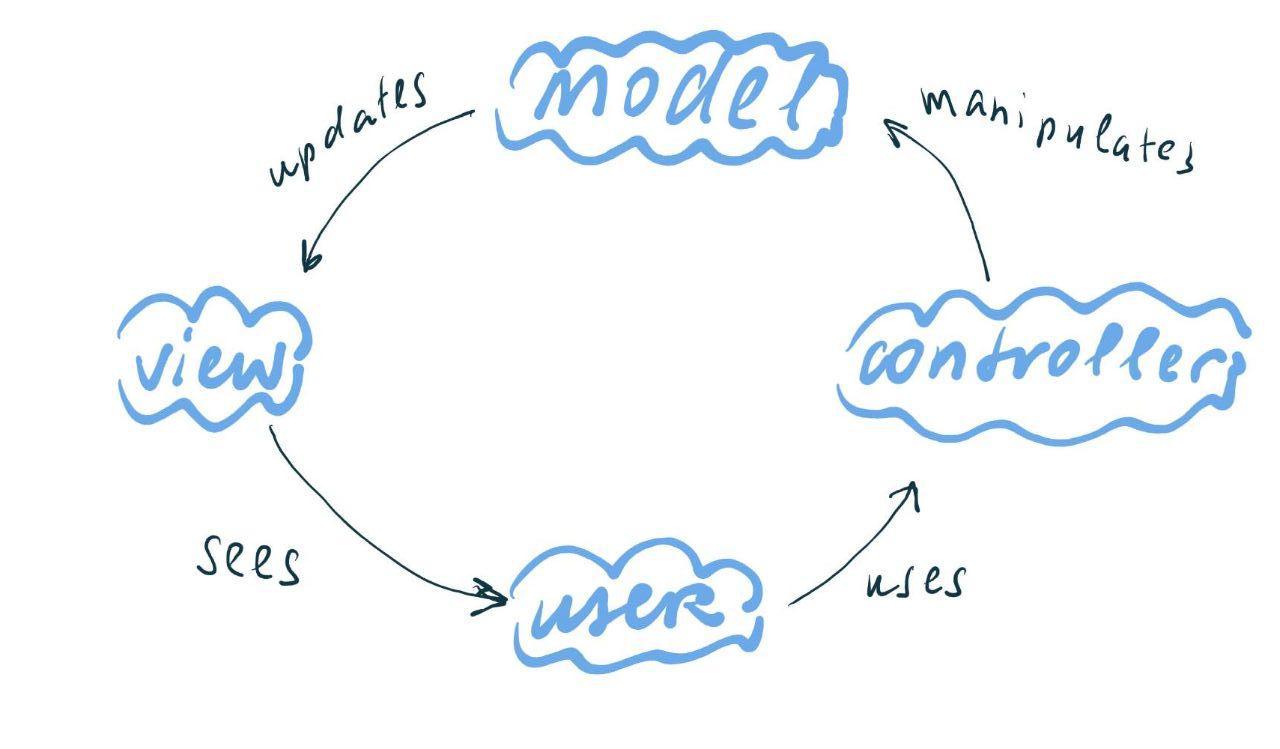 model
updates
manipulates
view
controller
sees
user
uses